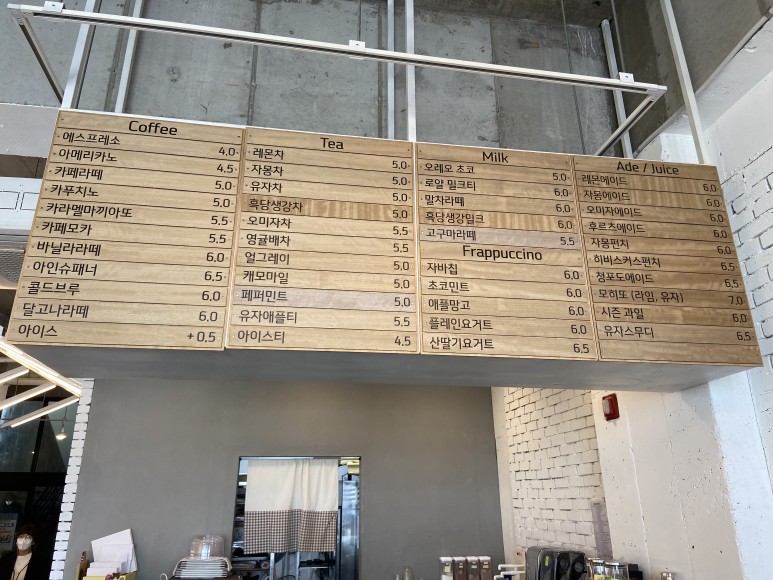 Coffee
에스프레소 4.0
아메리카노 4.5
카페라떼 5.0
카푸치노 5.0
카라멜마끼아또 5.5
카페모카 5.5
바닐라라떼 6.0
아인슈패너 6.5
콜드브루 6.0
달고나라떼 6.0
아이스 +0.5
Tea
레몬차 5.0
자몽차 5.0
유자차 5.0
흑당생강차 5.0
오미자차 5.5
영귤배차 5.5
얼그레이 5.0
캐모마일 5.0
페퍼민트 5.0
유자애플티 5.5
아이스티 4.5
Milk
오레오 초코 5.0
로얄 밀크티 6.0
말차라떼 6.0
흑당생강밀크 6.0
고구마라떼 5.5
Frappuccino
자바칩 6.0
초코민트 6.0
애플망고 6.0
플레인요거트 6.0
산딸기요거트 6.5
Ade / Juice
레몬에이드 6.0
자몽에이드 6.0
오미자에이드 6.0
후르츠에이드 6.0
자몽펀치 6.0
히비스커스펀치 6.5
청포도에이드 6.5
모히또 (라임, 유자) 7.0
시즌 과일 6.0
유자스무디 6.5